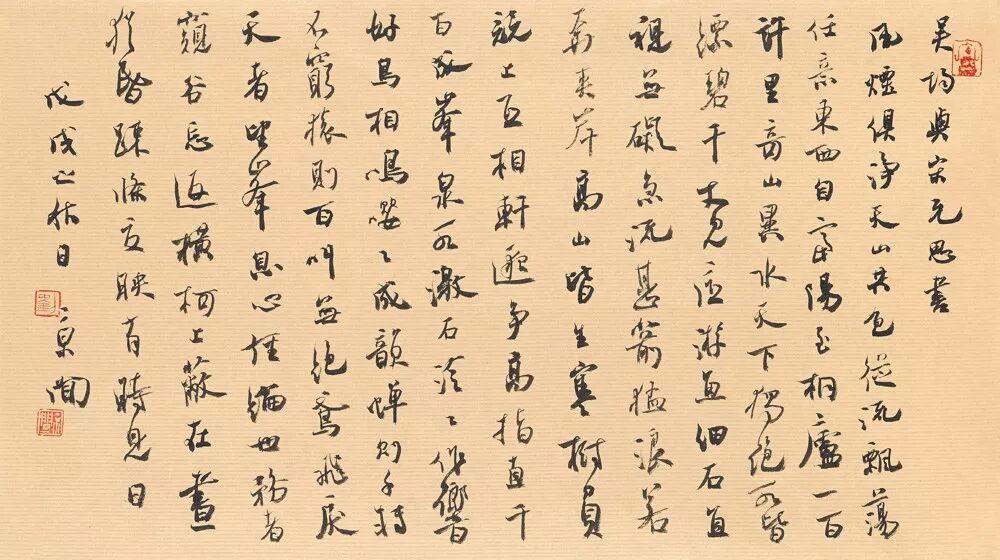 吴均與宋元思書
風煙俱淨天山共色從流飄蕩
任意東西自富陽至桐廬一百
許里奇山異水天下獨絶水皆
縹碧千丈見底游魚細石直
視無礙急流甚箭猛浪若
奔夹岸高山皆生寒樹負
競上互相軒邈争高指直千
百成峯泉水激石泠々作響
好鳥相鳴嚶々成韻蟬則千轉
不窮猿則百叫無絶鳶飛戾
天者望峯息心經綸世務者
窺谷忘返横柯上蔽在晝
猶昏疎條交映有時見日
戊戌之秋日